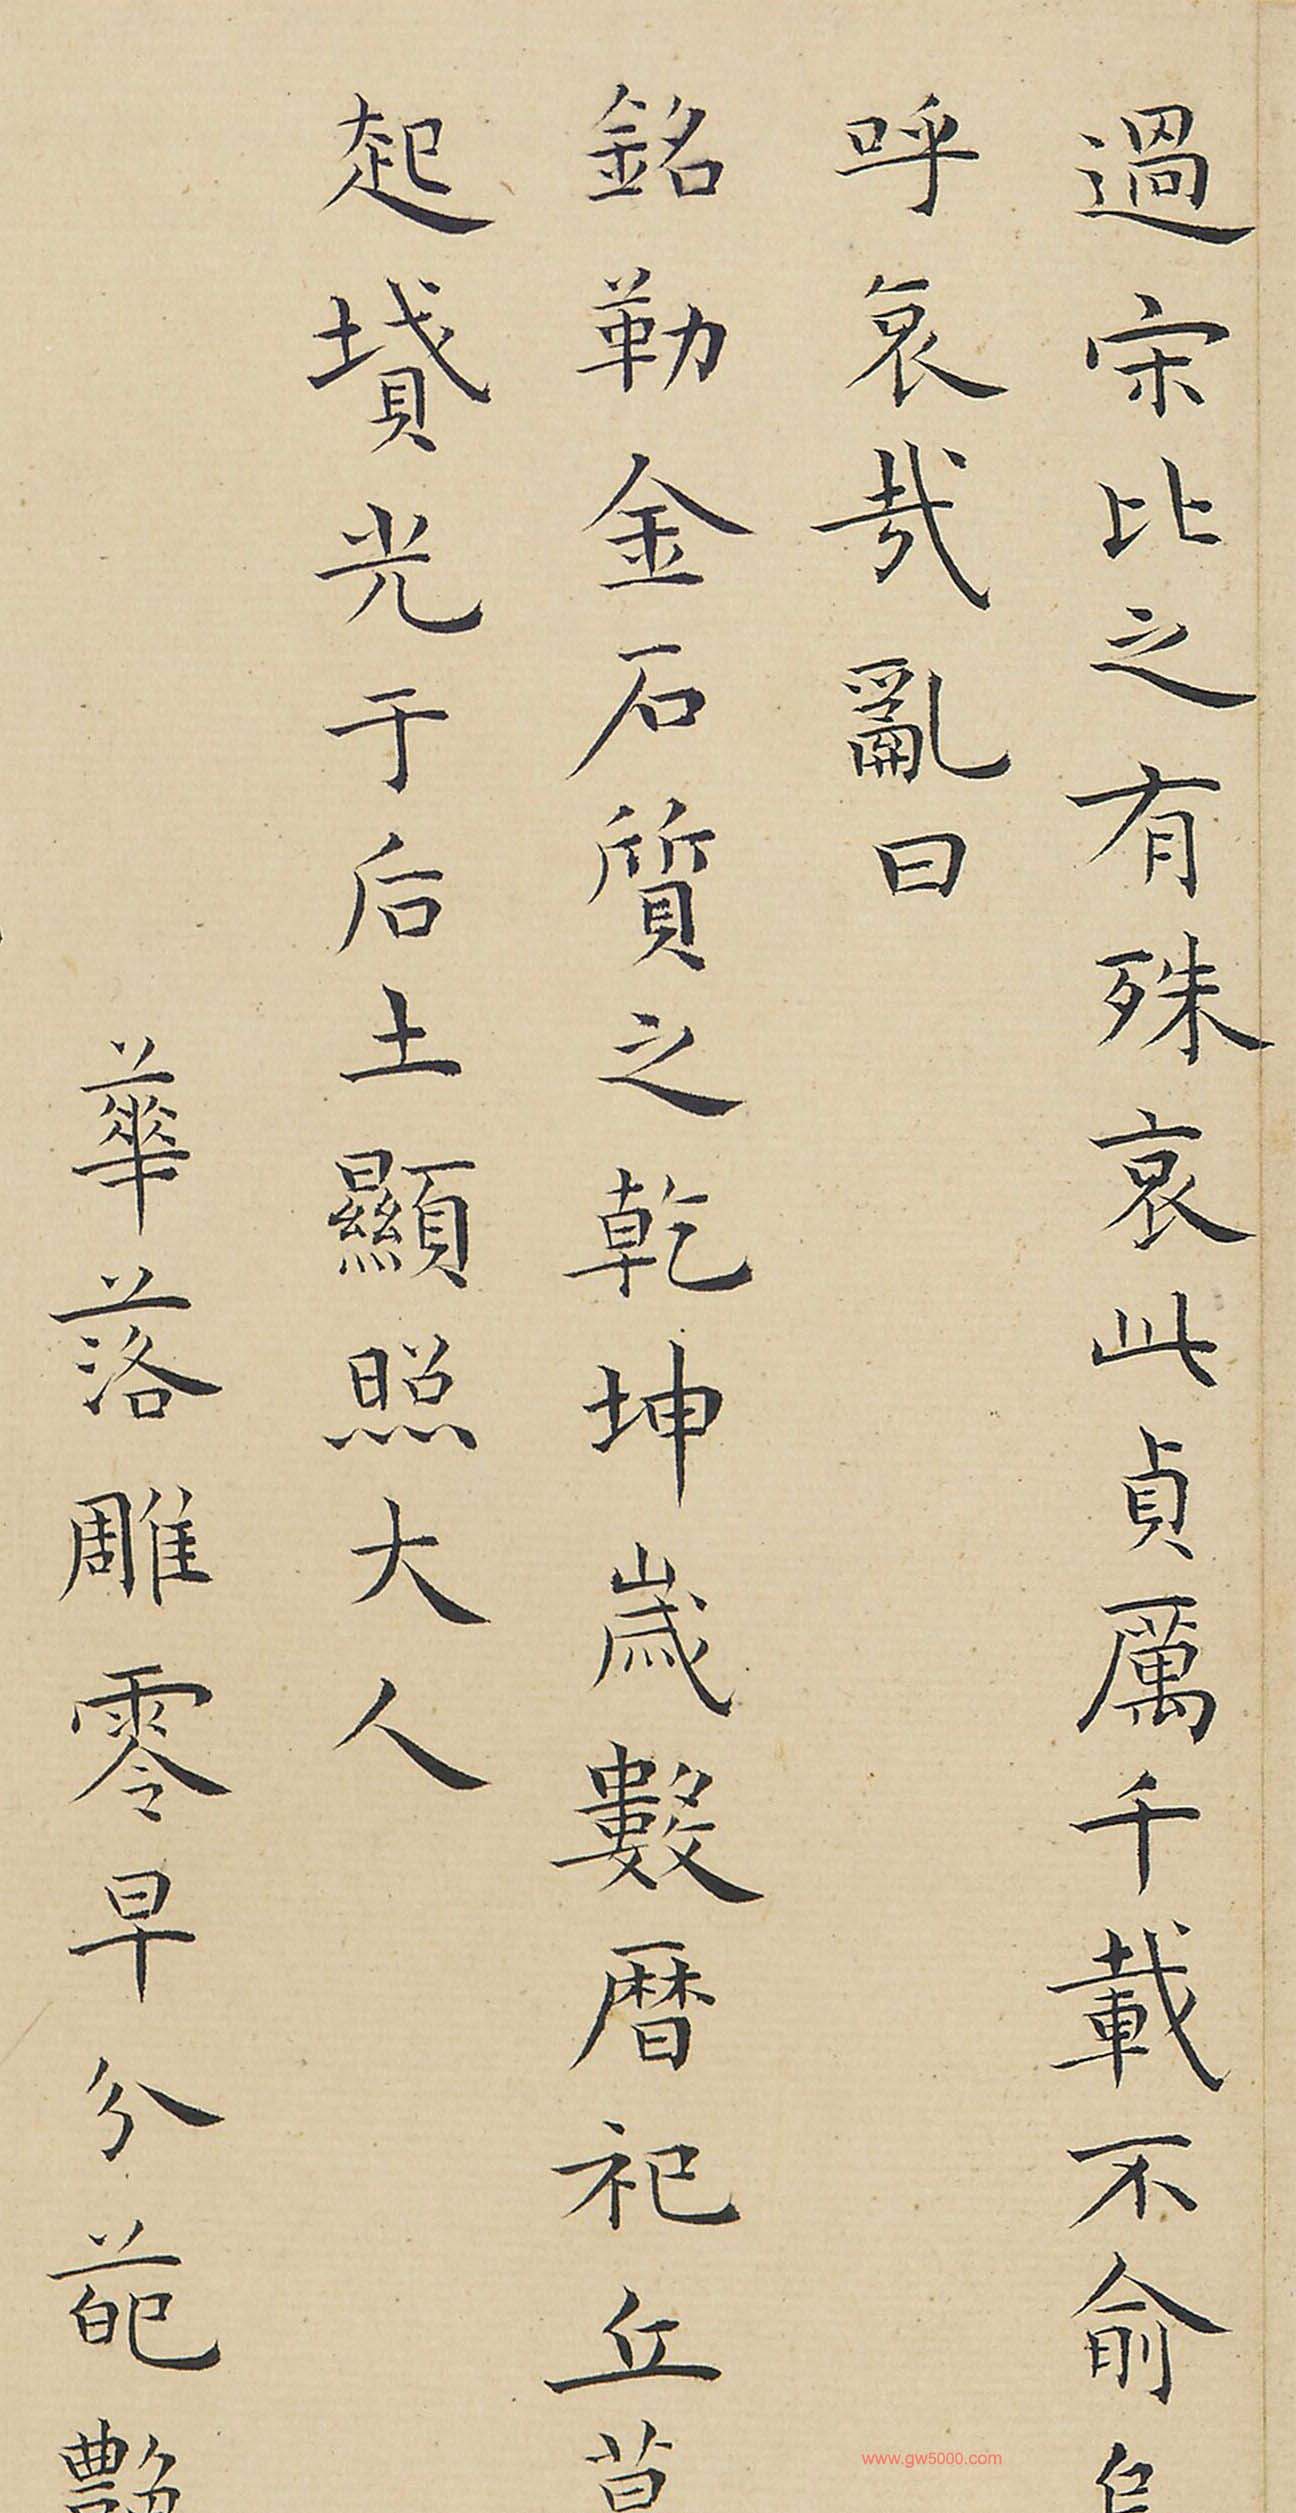 過宗比之有殊哀此貞厲千載不俞
呼哀哉亂曰
銘勒金石質之乾坤歲數曆祀丘
起墳光于后土顯照大人
華落雕零早分葩
www.gw5000.com